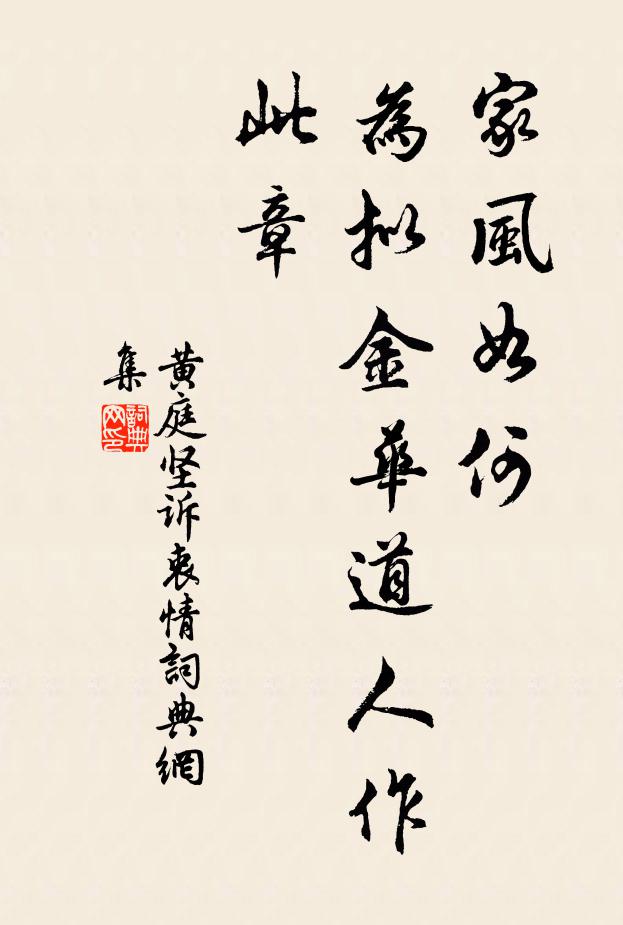 家風如何
為擬金華道人作
此章
黄庭坚訴衷情詞典網
集
詞典網印